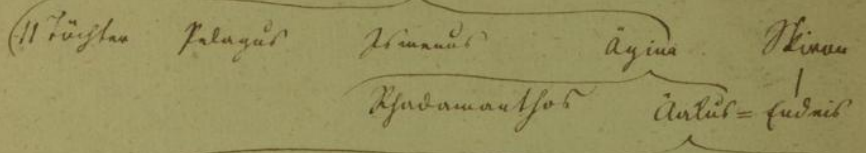 (11 Töchter Pelagus Ismenus Ägina Skiron
Rhadamanthos Äakus = Endeis